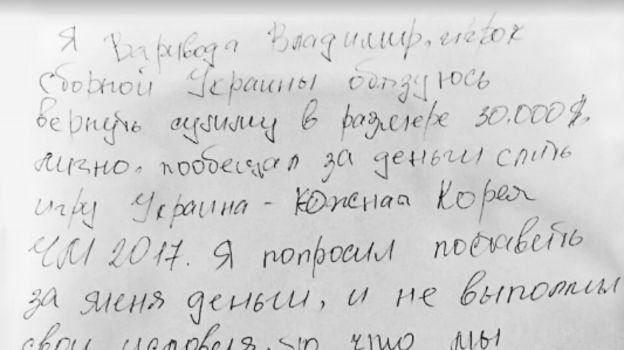 Я Варивода Владимир, игрок
сборной Украины обязуюсь
вернуть сумму в размере 30.000$,
лично, пообещал за деньги слить
игру Украина - Южная Корея
ЧМ 2017. Я попросил поставить
за меня деньги, и не выполнил
свои условия, что мы